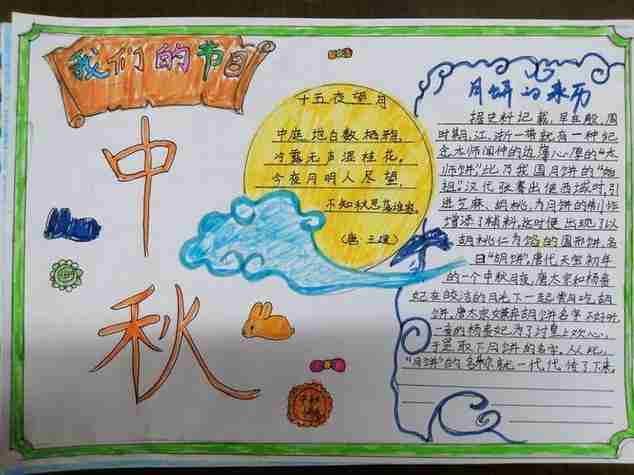 我们的节日
中秋
十五夜望月
中庭地白数栖鸦，
冷露无声湿桂花。
今夜月明人尽望，
不知秋思落谁家。
（唐·王建）
月饼的来历
据史料记载，早在殷、周
时期，江、浙一带就有一种纪
念太师闻仲的边薄心厚的“太
师饼”，此乃我国月饼的“始
祖”。汉代张骞出使西域时，引
进芝麻、胡桃，为月饼的制作
增添了辅料，这时便出现了以
胡桃仁为馅的圆形饼，名
曰“胡饼”。唐代，天宝初年
的一个中秋月夜，唐太宗和杨贵
妃在皎洁的月光下一起赏月吃胡
饼，唐太宗嫌弃胡饼名字不好听
一旁的杨贵妃为了讨皇上欢心，
于是取下月饼的名字。从此，
“月饼”的名称就一代代传了下来。